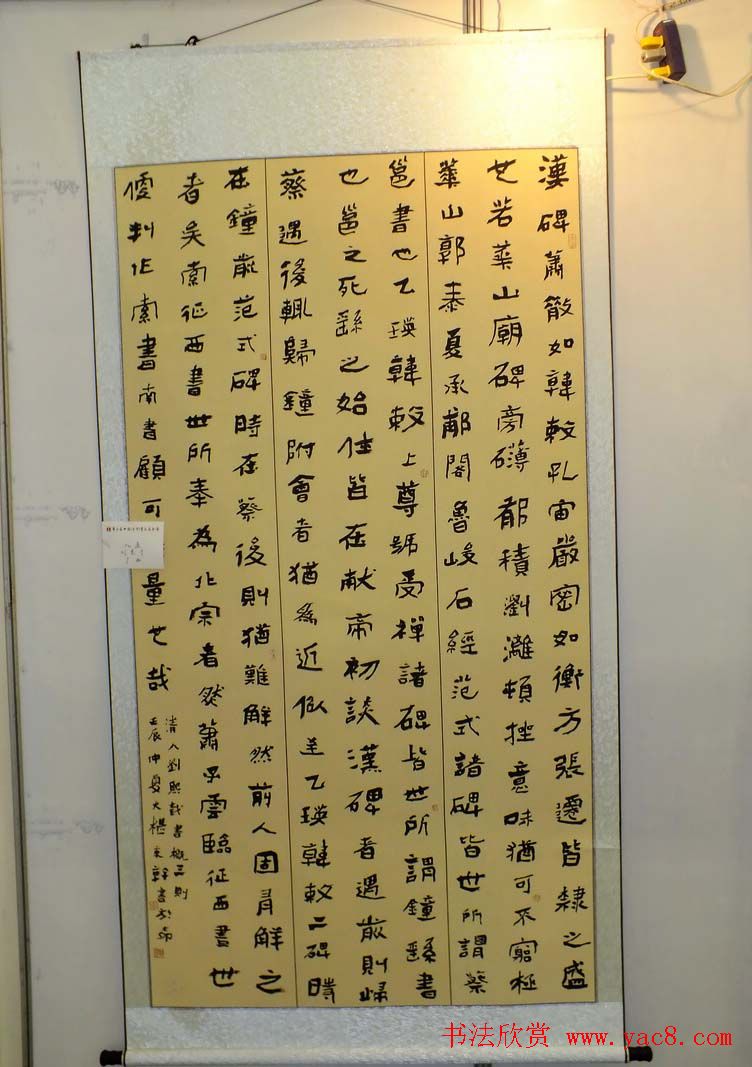 漢碑蕭散如韓敕孔宙嚴密如衡方張遷皆隸之盛
也若華山廟碑旁礴郁積瀏灕頓挫意味猶可不窮極
華山郭泰夏承郙閣魯峻石經范式諸碑皆世所謂蔡
邕書也乙瑛韓敕上尊號受禪諸碑皆世所謂鐘繇書
也邕之死繇之始仕皆在献帝初談漢碑者遇前則歸
蔡遇後輒歸鐘附會者猶為近似至乙瑛韓敕二碑時
在鐘前范式碑時在蔡後則猶難解然前人固有解之
者矣索征西書世所奉為北宗者然蕭子雲臨征西書世
便判作索書南書顧可量也哉
清人劉熙載書概三則
壬辰仲夏大
書法欣賞 www.yac8.com